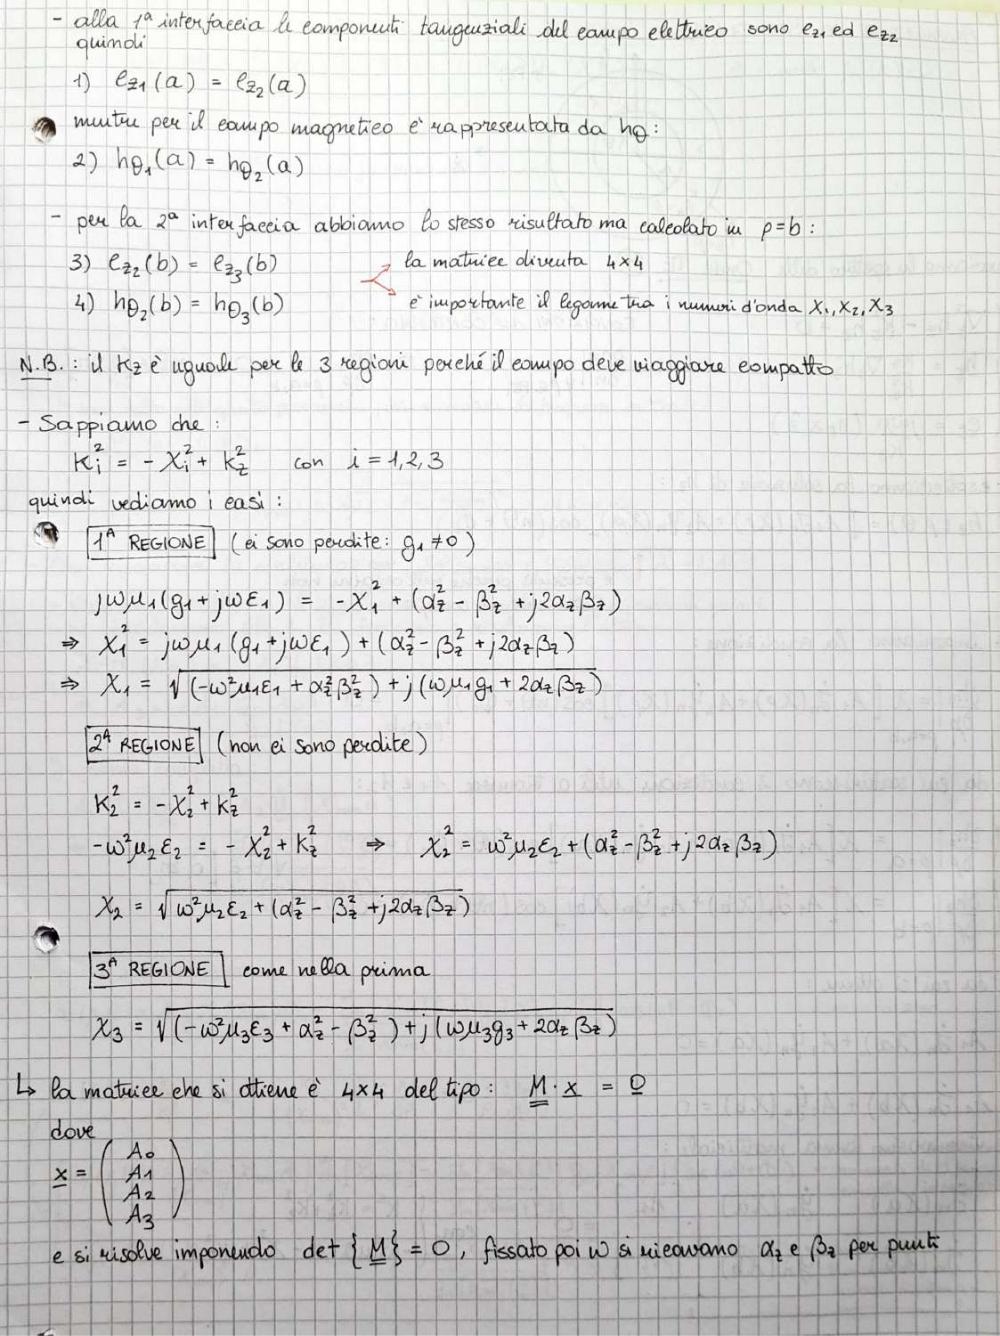 - alla 1ª interfaccia le componenti tangenziali del campo elettrico sono e_{z1} ed e_{z2}
quindi
1) e_{z1}(a) = e_{z2}(a)
mentre per il campo magnetico è rappresentata da hθ:
2) h_{θ1}(a) = h_{θ2}(a)
- per la 2ª interfaccia abbiamo lo stesso risultato ma calcolato in ρ=b:
3) e_{z2}(b) = e_{z3}(b)
la matrice diventa 4×4
4) h_{θ2}(b) = h_{θ3}(b)
è importante il legame tra i numeri d'onda χ₁, χ₂, χ₃
N.B.: il K_z è uguale per le 3 regioni perché il campo deve viaggiare compatto
- Sappiamo che:
K_i² = -χ_i² + k_z² con i = 1,2,3
quindi vediamo i casi:
1ª REGIONE (ci sono perdite: g₁ ≠ 0)
jωμ₁(g₁+jωε₁) = -χ₁² + (α_z² - β_z² + j2α_zβ_z)
⇒ χ₁² = jωμ₁(g₁+jωε₁) + (α_z² - β_z² + j2α_zβ_z)
⇒ χ₁ = √((-ω²μ₁ε₁ + α_z²β_z²) + j(ωμ₁g₁ + 2α_zβ_z))
2ª REGIONE (non ci sono perdite)
K₂² = -χ₂² + k_z²
-ω²μ₂ε₂ = -χ₂² + k_z² ⇒ χ₂² = ω²μ₂ε₂ + (α_z² - β_z² + j2α_zβ_z)
χ₂ = √(ω²μ₂ε₂ + (α_z² - β_z² + j2α_zβ_z))
3ª REGIONE come nella prima
χ₃ = √((-ω²μ₃ε₃ + α_z² - β_z²) + j(ωμ₃g₃ + 2α_zβ_z))
↳ la matrice che si ottiene è 4×4 del tipo: M · x = 0
dove
x = (A₀
A₁
A₂
A₃)
e si risolve imponendo det {M} = 0, fissato poi ω si ricavano α_z e β_z per punti